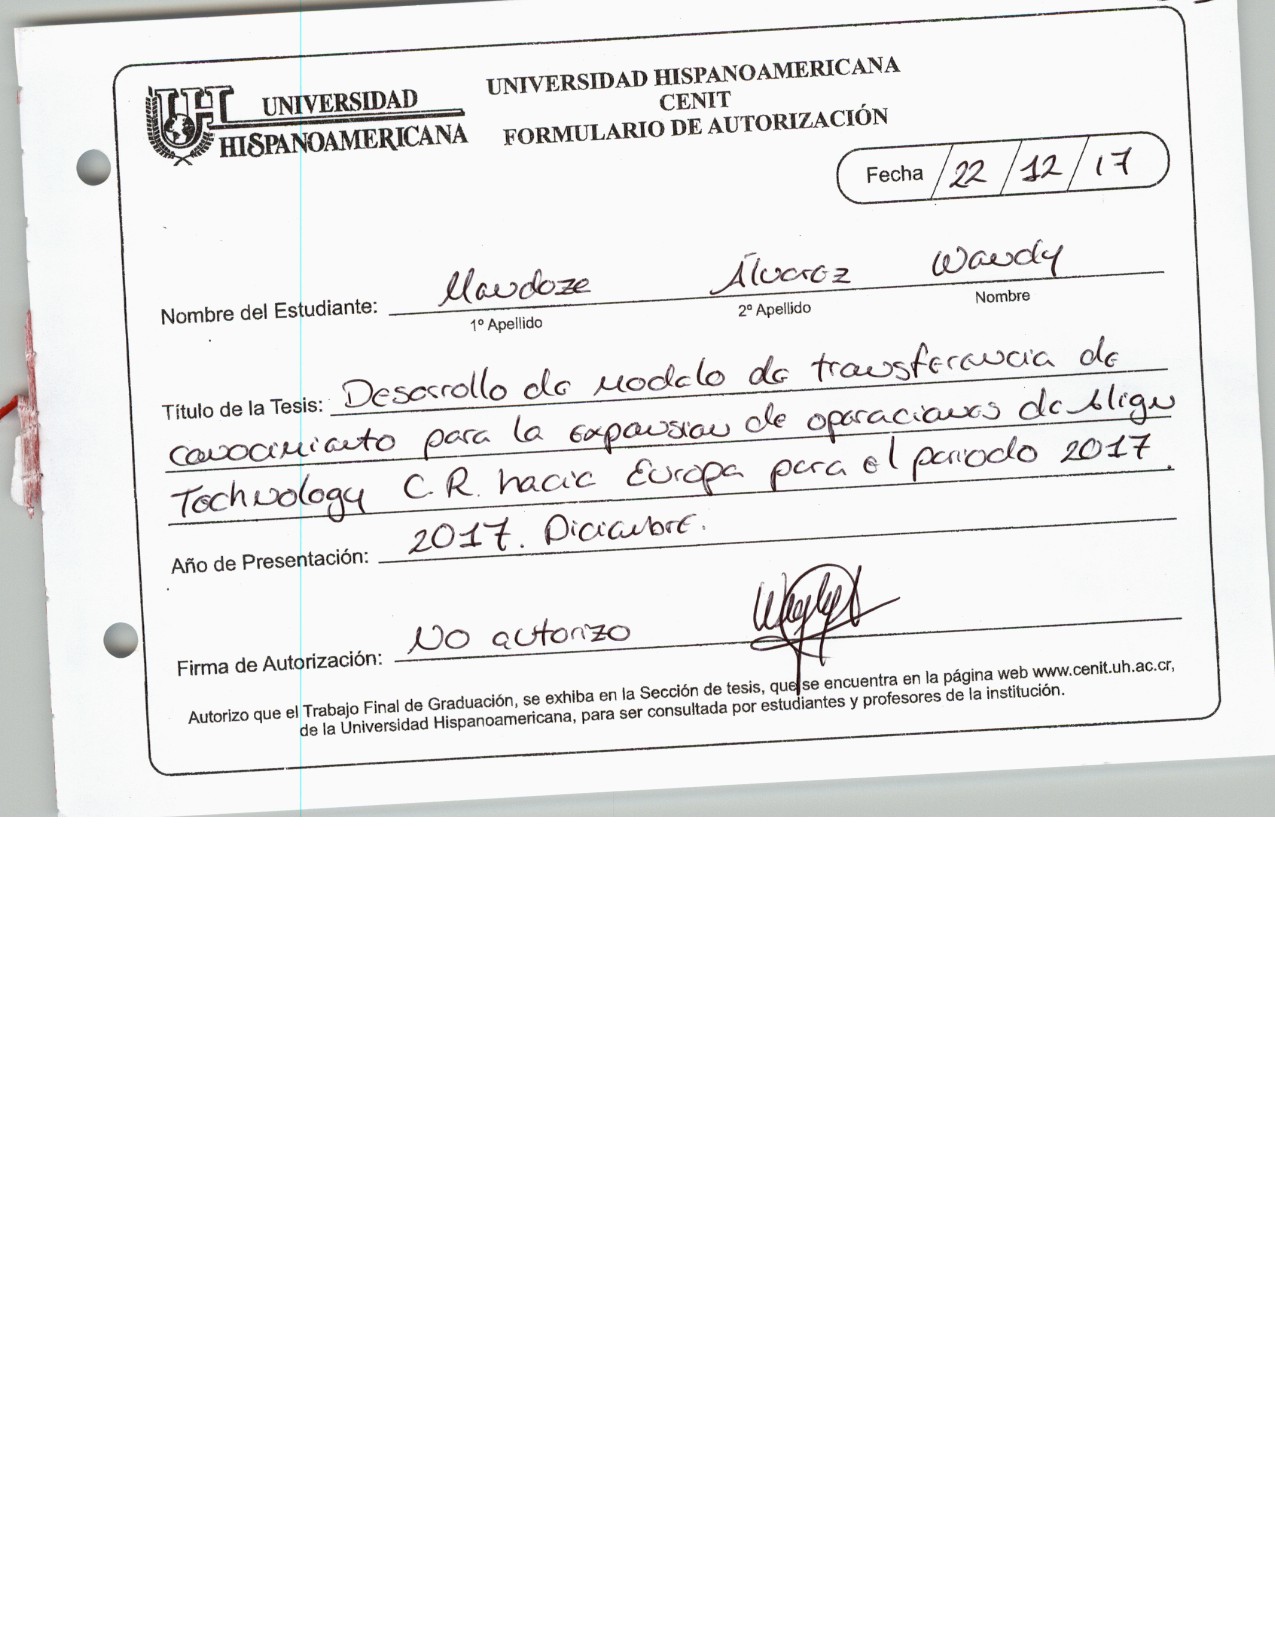 UNIVERSIDAD
HISPANOAMERICANA
UNIVERSIDAD HISPANOAMERICANA
CENIT
FORMULARIO DE AUTORIZACIÓN
Fecha / 22 / 12 / 17
Nombre del Estudiante: Mendoza Álvarez Wendy
1º Apellido 2º Apellido Nombre
Título de la Tesis: Desarrollo de modelo de transferencia de
conocimiento para la expansion de operaciones de Align
Technology C.R. hacia Europa para el periodo 2017.
Año de Presentación: 2017. Diciembre.
Firma de Autorización: No autorizo
Autorizo que el Trabajo Final de Graduación, se exhiba en la Sección de tesis, que se encuentra en la página web www.cenit.uh.ac.cr,
de la Universidad Hispanoamericana, para ser consultada por estudiantes y profesores de la institución.